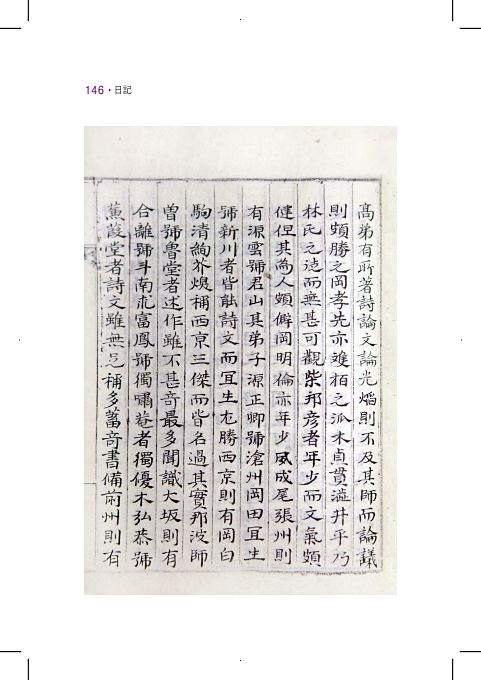 146・日記
高弟有所著詩論文論光焰則不及其師而論議
則頗勝之岡孝先亦雙栢之派木貞貫澁井平乃
林氏之徒而無甚可觀柴邦彦者年少而文氣頗
健但其爲人頗僻岡明倫亦年少夙成尾張州則
有源雲號君山其弟子源正卿號滄州岡田冝生
號新川者皆能詩文而冝生尤勝西京則有岡白
駒清絢芥煥稱西京三傑而皆名過其實那波師
曽號魯堂者述作雖不甚竒最多聞識大坂則有
合離號斗南木富鳳號獨嘯菴者獨優木弘恭號
蒹葭堂者詩文雖無足稱多蓄竒書備前州則有